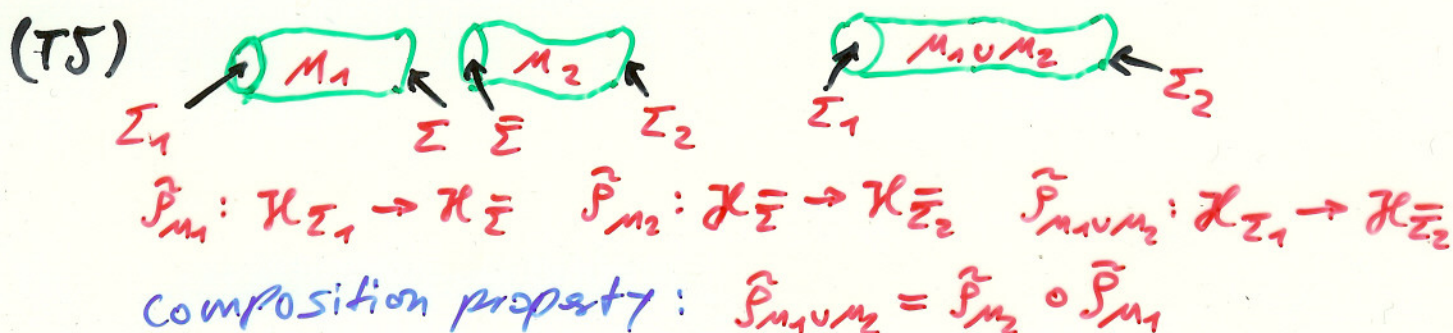 (T5) M₁ M₂ M₁∪M₂
Σ₁ Σ Σ̄ Σ₂ Σ₁ Σ₂
ρ̃_{M₁} : ℋ_{Σ₁} → ℋ_{Σ̄} ρ̃_{M₂} : ℋ_{Σ̄} → ℋ_{Σ̄₂} ρ̃_{M₁∪M₂} : ℋ_{Σ₁} → ℋ_{Σ̄₂}
composition property : ρ̃_{M₁∪M₂} = ρ̃_{M₂} ∘ ρ̃_{M₁}